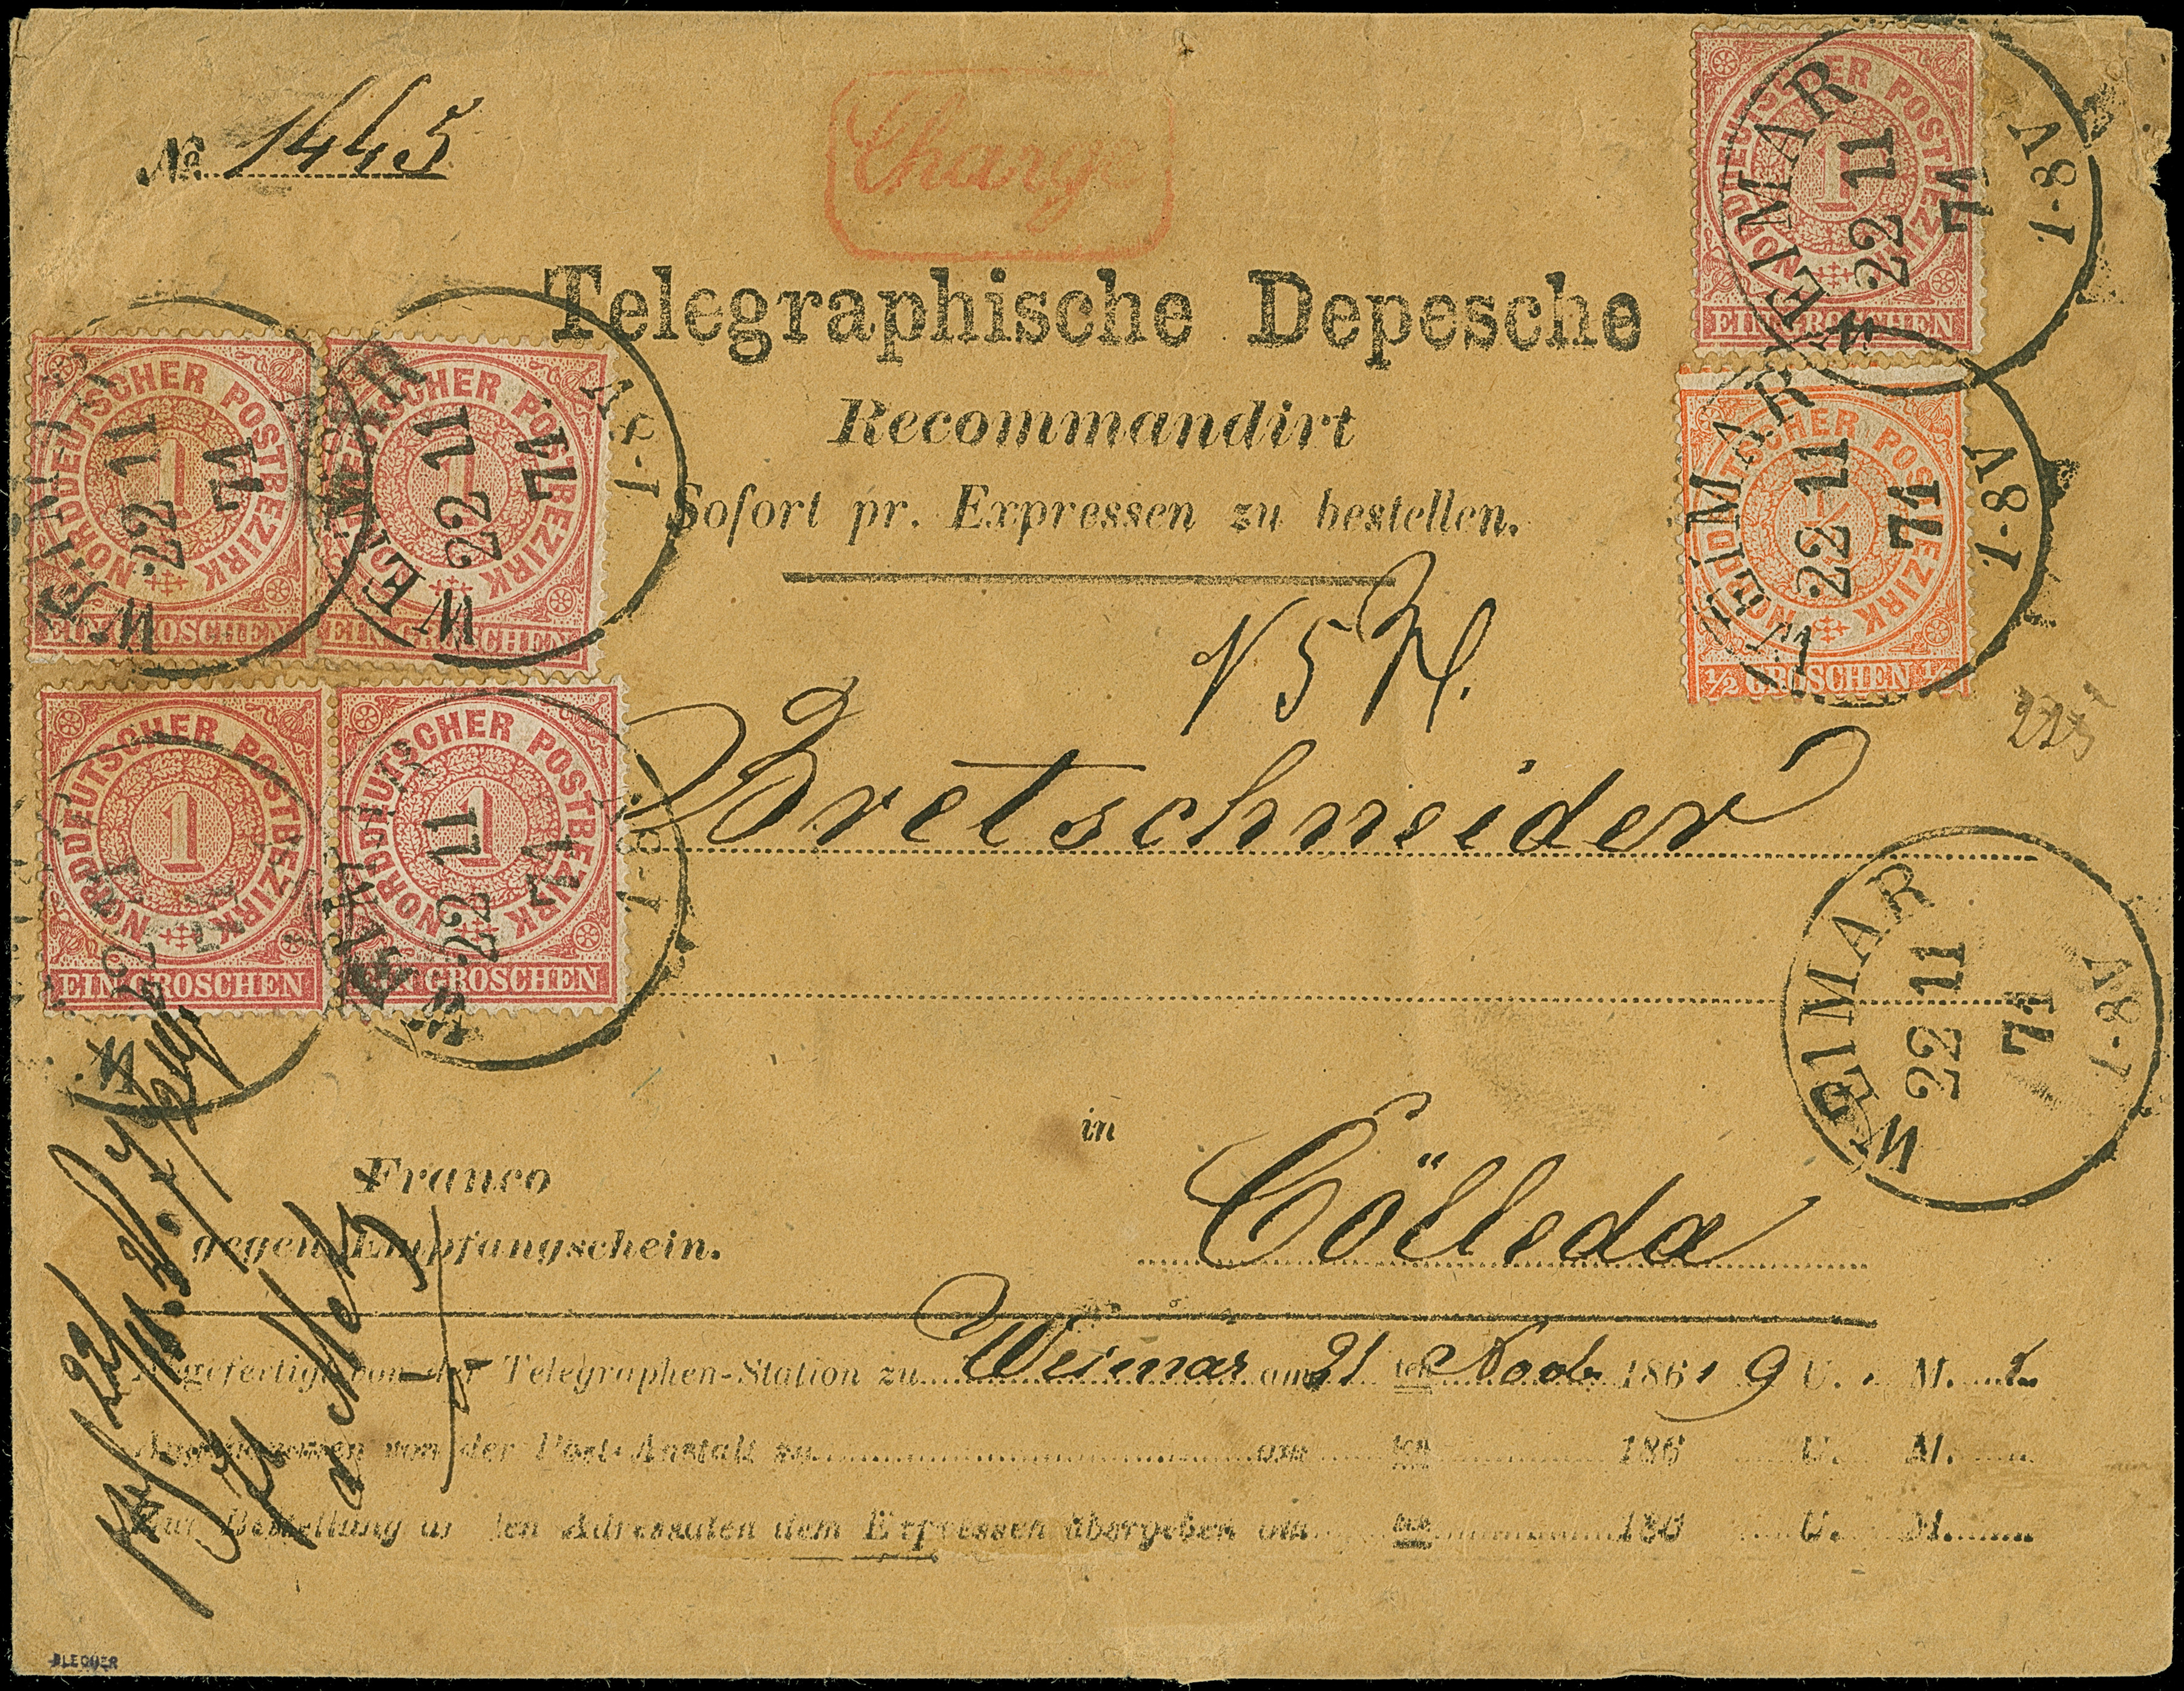 № 1445
Chargé
Telegraphische Depesche
Recommandirt
Sofort pr. Expressen zu bestellen.
Bretschneider
in
Cölleda
Franco
gegen Empfangschein.
Abgefertigt von der Telegraphen-Station zu Weimar am 21 ten Novb 186 9 U. M.
Angenommen von der Post-Anstalt zu am ten 186 U. M.
Zur Bestellung an den Adressaten dem Expressen übergeben am ten 186 U. M.
NORDDEUTSCHER POSTBEZIRK
1
EIN GROSCHEN
NORDDEUTSCHER POSTBEZIRK
1
EIN GROSCHEN
NORDDEUTSCHER POSTBEZIRK
1
EIN GROSCHEN
NORDDEUTSCHER POSTBEZIRK
1
EIN GROSCHEN
NORDDEUTSCHER POSTBEZIRK
1
EIN GROSCHEN
NORDDEUTSCHER POSTBEZIRK
1/2 GROSCHEN 1/2
WEIMAR
22 11
71
7-8V
WEIMAR
22 11
71
7-8V
WEIMAR
22 11
71
7-8V
WEIMAR
22 11
71
WEIMAR
22 11
71
WEIMAR
22 11
71
225
BLECHER